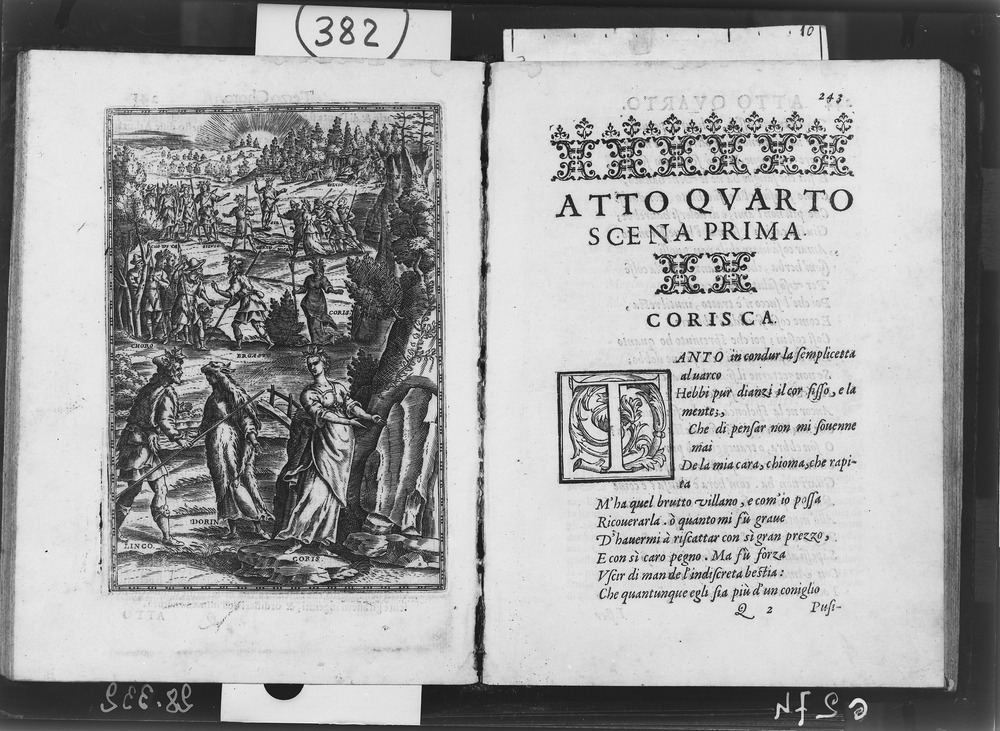 382
10
CORIS
CHORO
ERGASTO
DORIN
LINCO.
CORIS
243
ATTO QVARTO
SCENA PRIMA
CORISCA
TANTO in condur la semplicetta
al uarco
Hebbi pur dianzi il cor fisso, e la
mente;,
Che di pensar non mi souenne
mai
De la mia cara, chioma, che rapi-
ta
M'ha quel brutto villano, e com'io possa
Ricouerarla. ò quanto mi fù graue
D'hauermi à riscattar con sì gran prezzo,
E con sì caro pegno. Ma fù forza
Vscir di man de l'indiscreta bestia:
Che quantunque egli sia più d'un coniglio
Q 2 Pusi-
28.339
6274